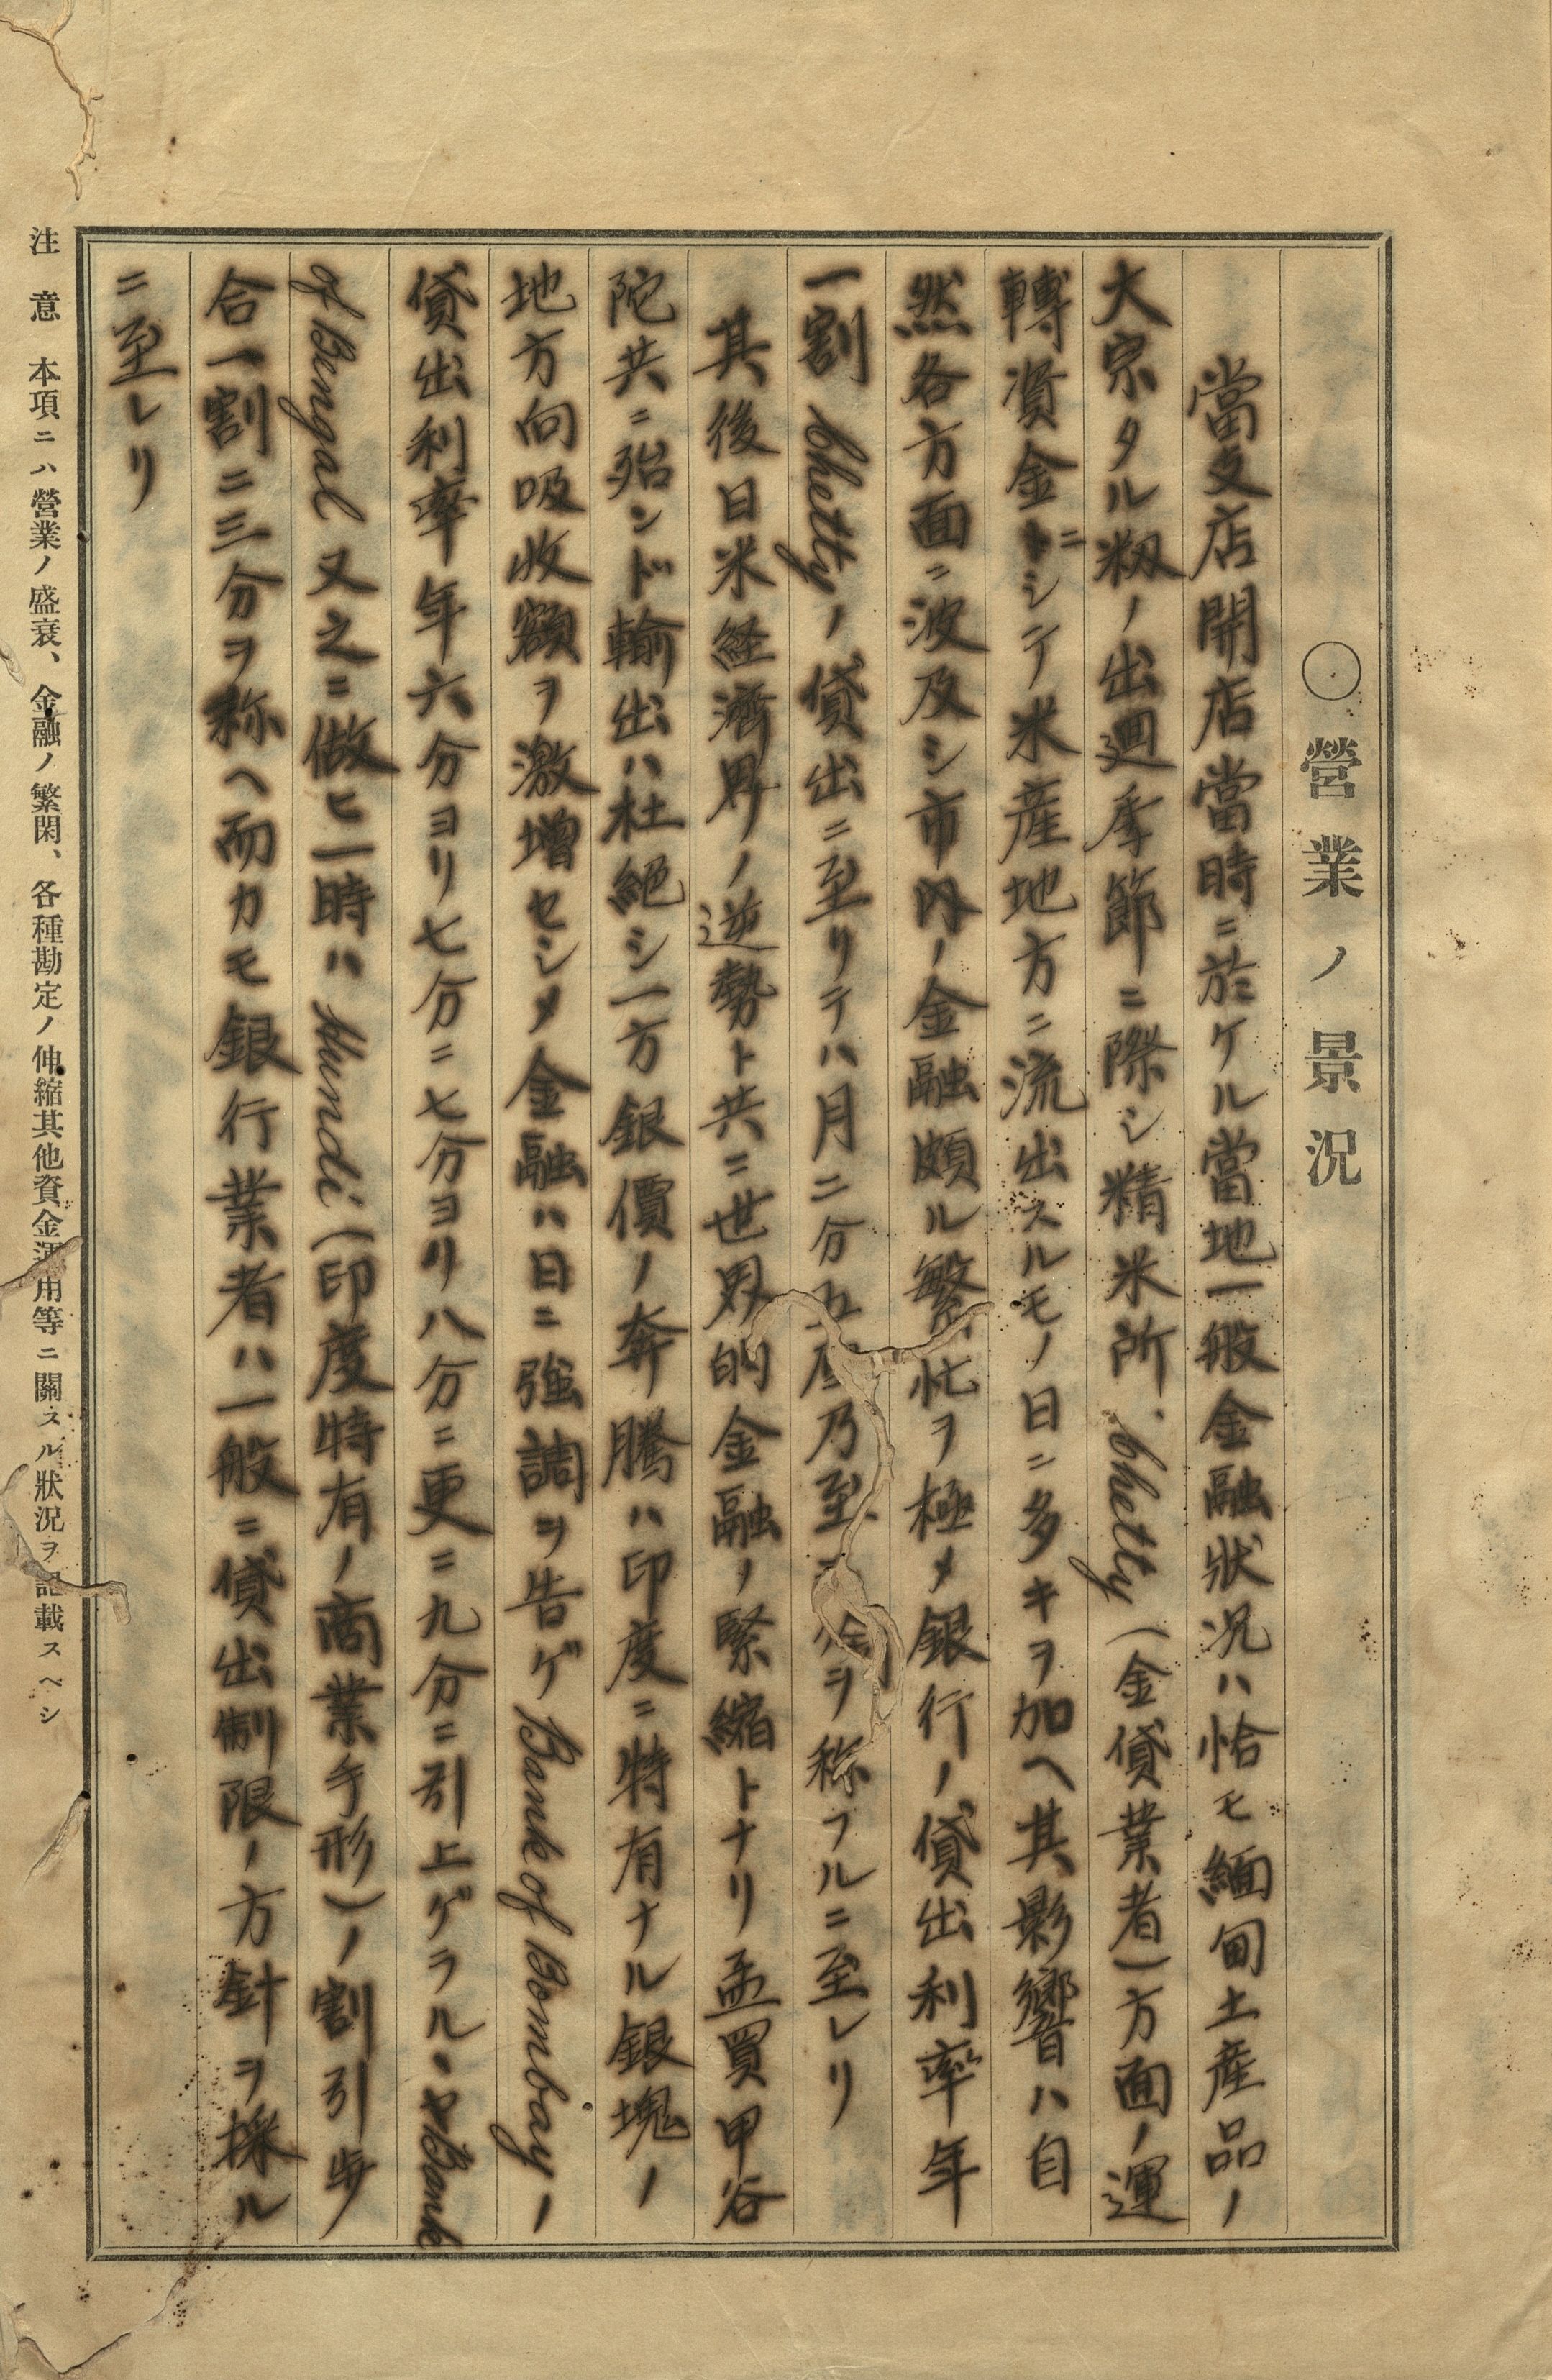 〇營業ノ景況
當支店開店當時ニ於ケル當地一般金融狀況ハ恰モ緬甸土産品ノ
大宗タル籾ノ出廻季節ニ際シ精米所、Chetty（金貸業者）方面ノ運
轉資金ニシテ米産地方ニ流出スルモノ日ニ多キヲ加ヘ其影響ハ自
然各方面ニ波及シ市内ノ金融頗ル繁忙ヲ極メ銀行ノ貸出利率年
一割Chettyノ貸出ニ至リテハ月二分五厘乃至ヲ称フルニ至レリ
其後日米経濟界ノ逆勢ト共ニ世界的金融ノ緊縮トナリ孟買甲谷
陀共ニ殆ンド輸出ハ杜絶シ一方銀價ノ奔騰ハ印度ニ特有ナル銀塊ノ
地方向吸收額ヲ激増セシメ金融ハ日ニ強調ヲ告ゲBank of Bombayノ
貸出利率年六分ヨリ七分ニ七分ヨリ八分ニ更ニ九分ニ引上ゲラルヽヤBank
of Bengal又之ニ做ヒ一時ハHundi（印度特有ノ商業手形）ノ割引歩
合一割二三分ヲ称ヘ而カモ銀行業者ハ一般ニ貸出制限ノ方針ヲ採ル
ニ至レリ
注意　本項ニハ營業ノ盛衰、金融ノ繁閑、各種勘定ノ伸縮其他資金運用等ニ關スル狀況ヲ記載スベシ